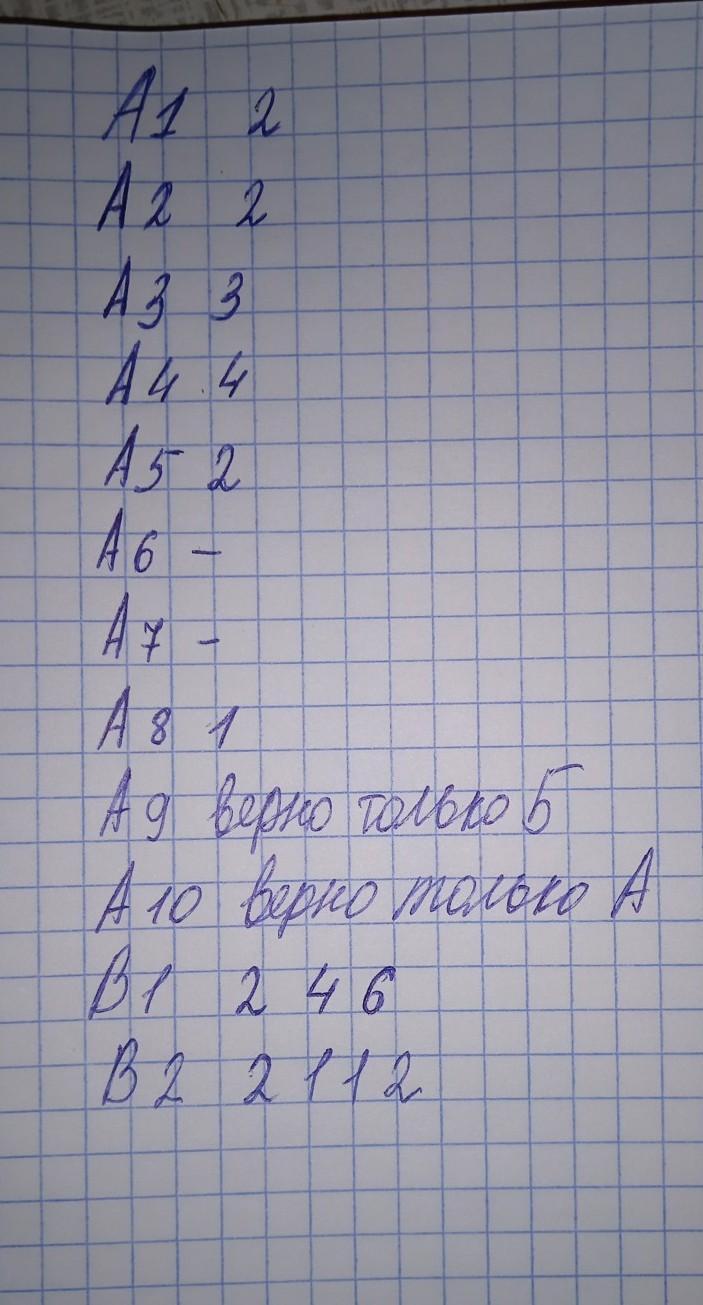 А1 2
А2 2
А3 3
А4 4
А5 2
А6 –
А7 –
А8 1
А9 верно только Б
А10 верно только А
В1 2 4 6
В2 2 1 1 2